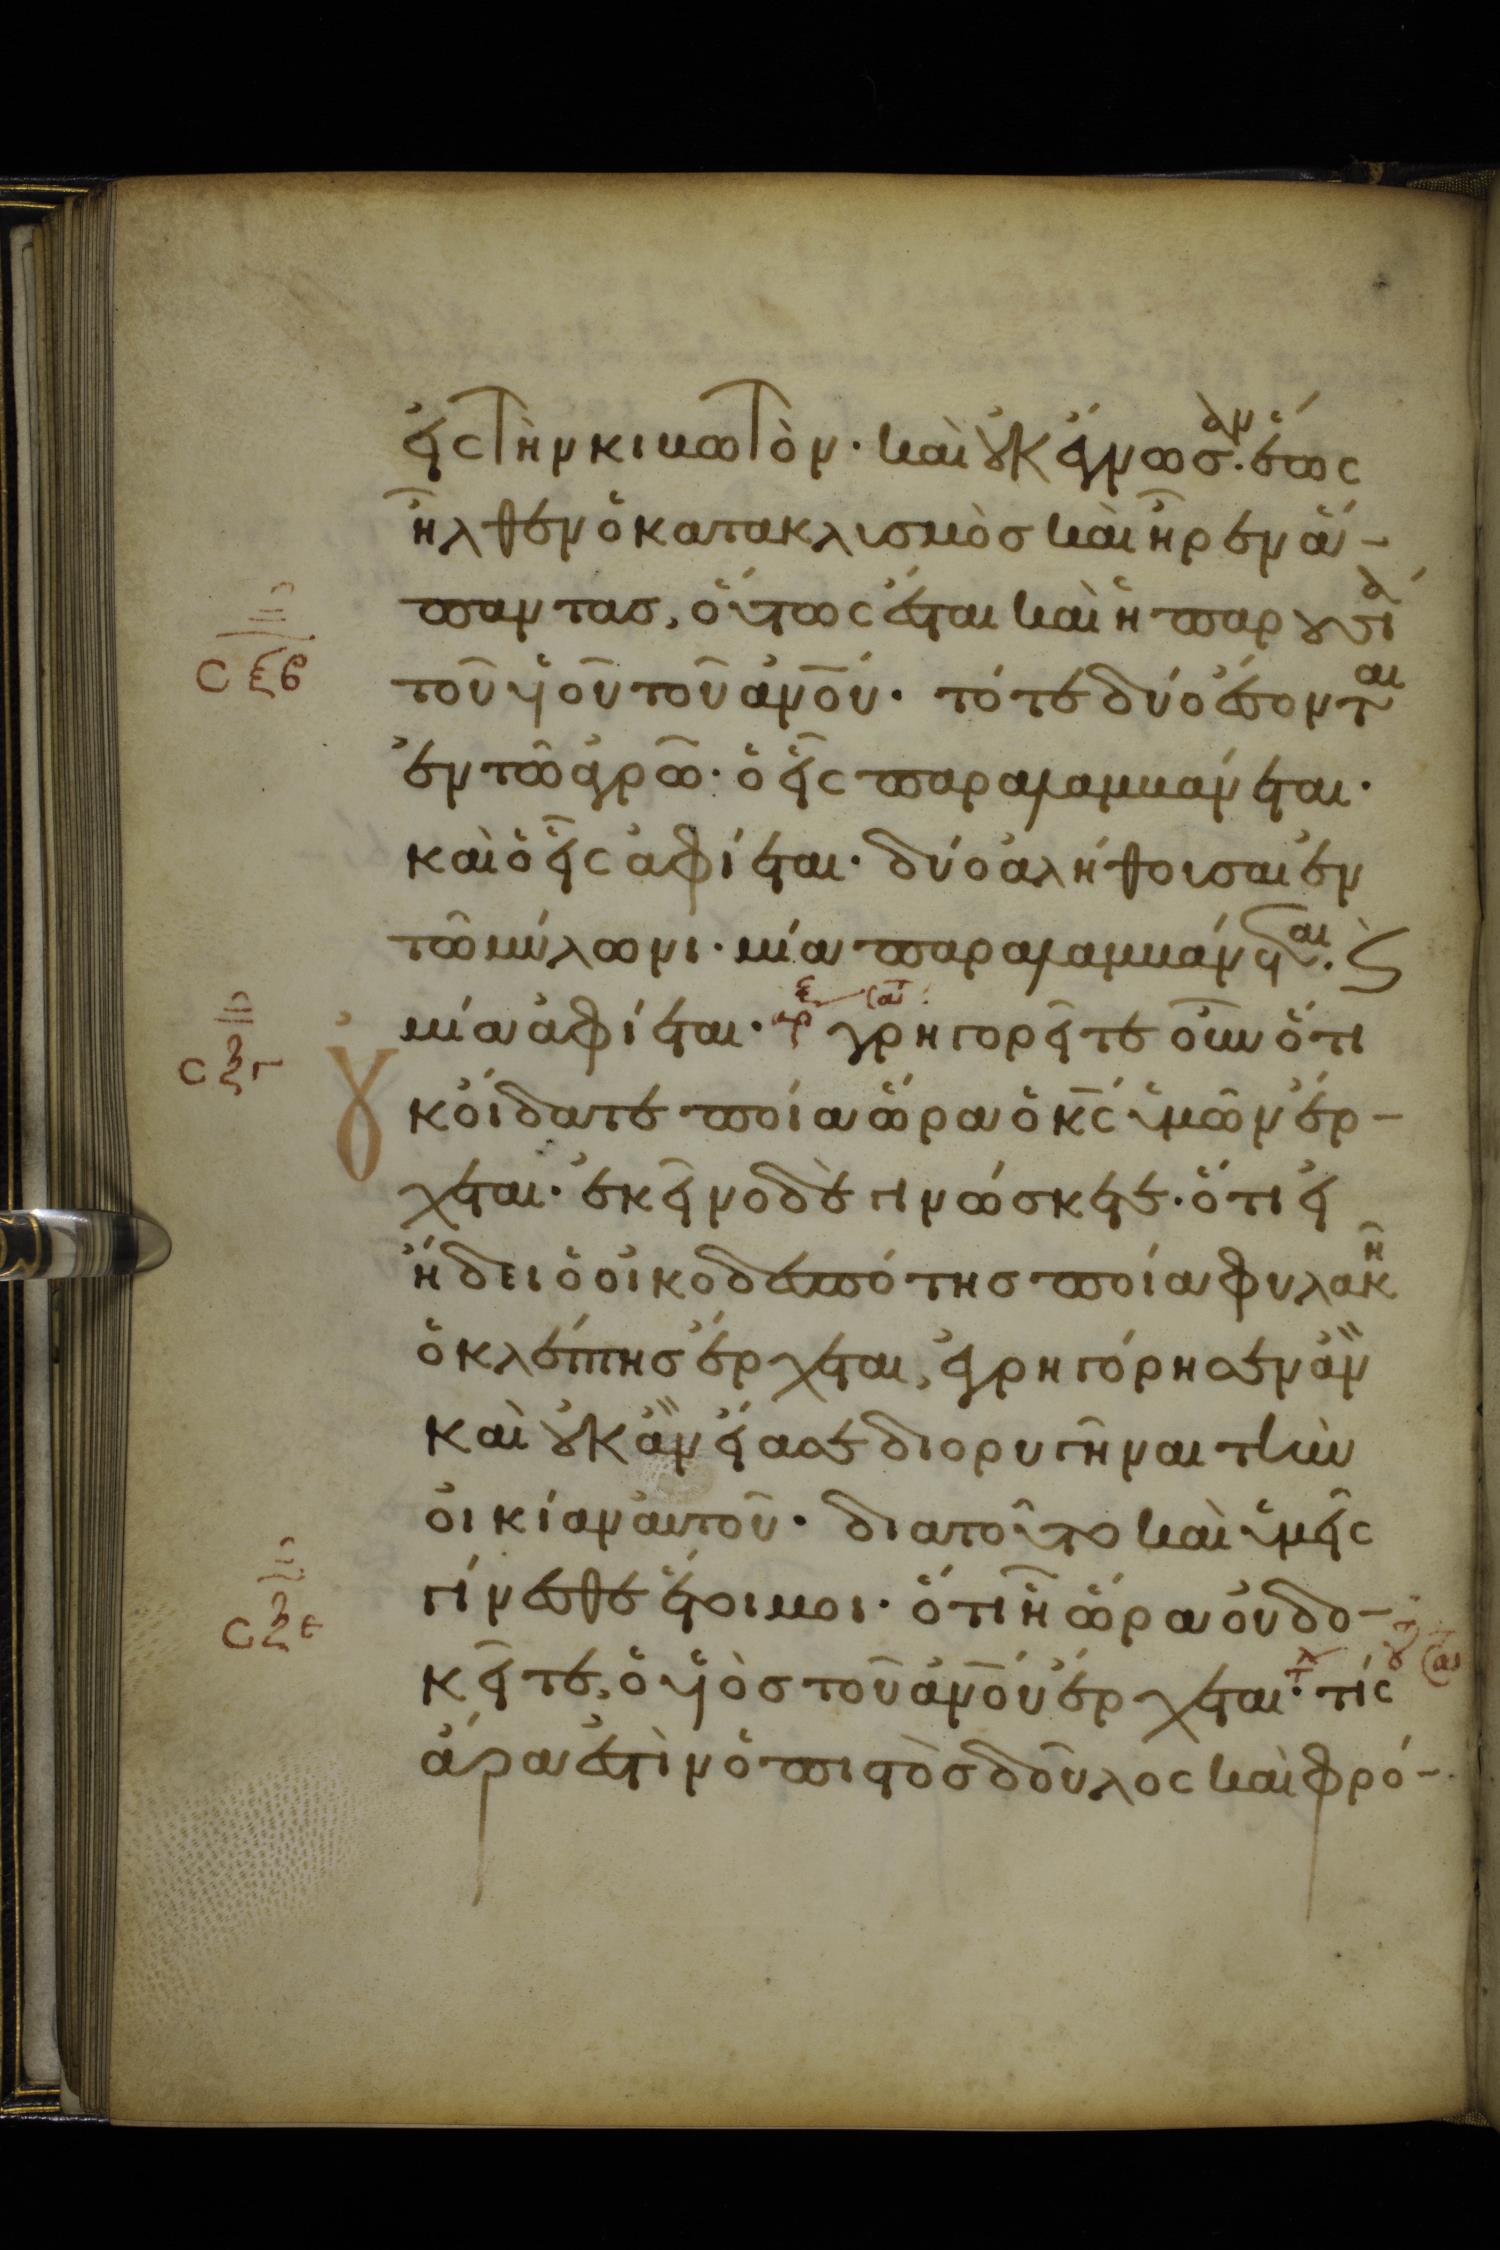 εἰς τὴν κιβωτὸν· καὶ οὐκ ἔγνωσαν· ἕως
ἦλθεν ὁ κατακλισμὸς καὶ ἦρεν ἅ-
παντας, οὕτως ἔσται καὶ ἡ παρουσία
τοῦ υἱοῦ τοῦ ἀν̅ο̅υ̅· τότε δύο ἔσονται
ἐν τῶ ἀγρῶ· ὁ εἷς παραλαμβάνεται·
καὶ ὁ εἷς ἀφίεται· δύο ἀλήθουσαι ἐν
τῶ μύλωνι· μία παραλαμβάνεται· ϛ
σξβ
μία ἀφίεται· γρηγορεῖτε οὖν ὅτι
σξγ
οὐκ οἴδατε ποία ὥρα ὁ κ̅ς̅ ὑμῶν ἔρ-
χεται· ἐκεῖνο δὲ γινώσκετε· ὅτι εἰ
ἤδει ὁ οἰκοδεσπότης ποία φυλακῆ
ὁ κλέπτης ἔρχεται, ἐγρηγόρησεν ἂν
καὶ οὐκ ἂν εἴασε διορυγῆναι τὴν
οἰκίαν αὐτοῦ· διατοῦτο καὶ ὑμεῖς
γίνεσθε ἕτοιμοι· ὅτι ἧ ὥρα οὐ δο-
κεῖτε, ὁ υἱὸς τοῦ ἀν̅ο̅υ̅ ἔρχεται· τίς
ἄρα ἐστὶν ὁ πιστὸς δοῦλος καὶ φρό-